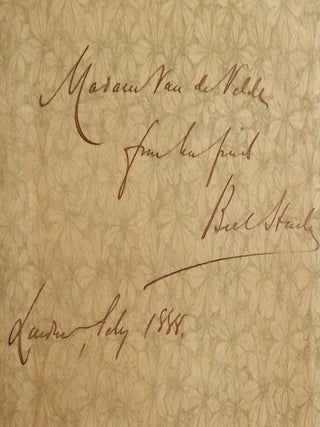 Madame Van de Velde
from her friend
Bret Harte
London, July 1888.